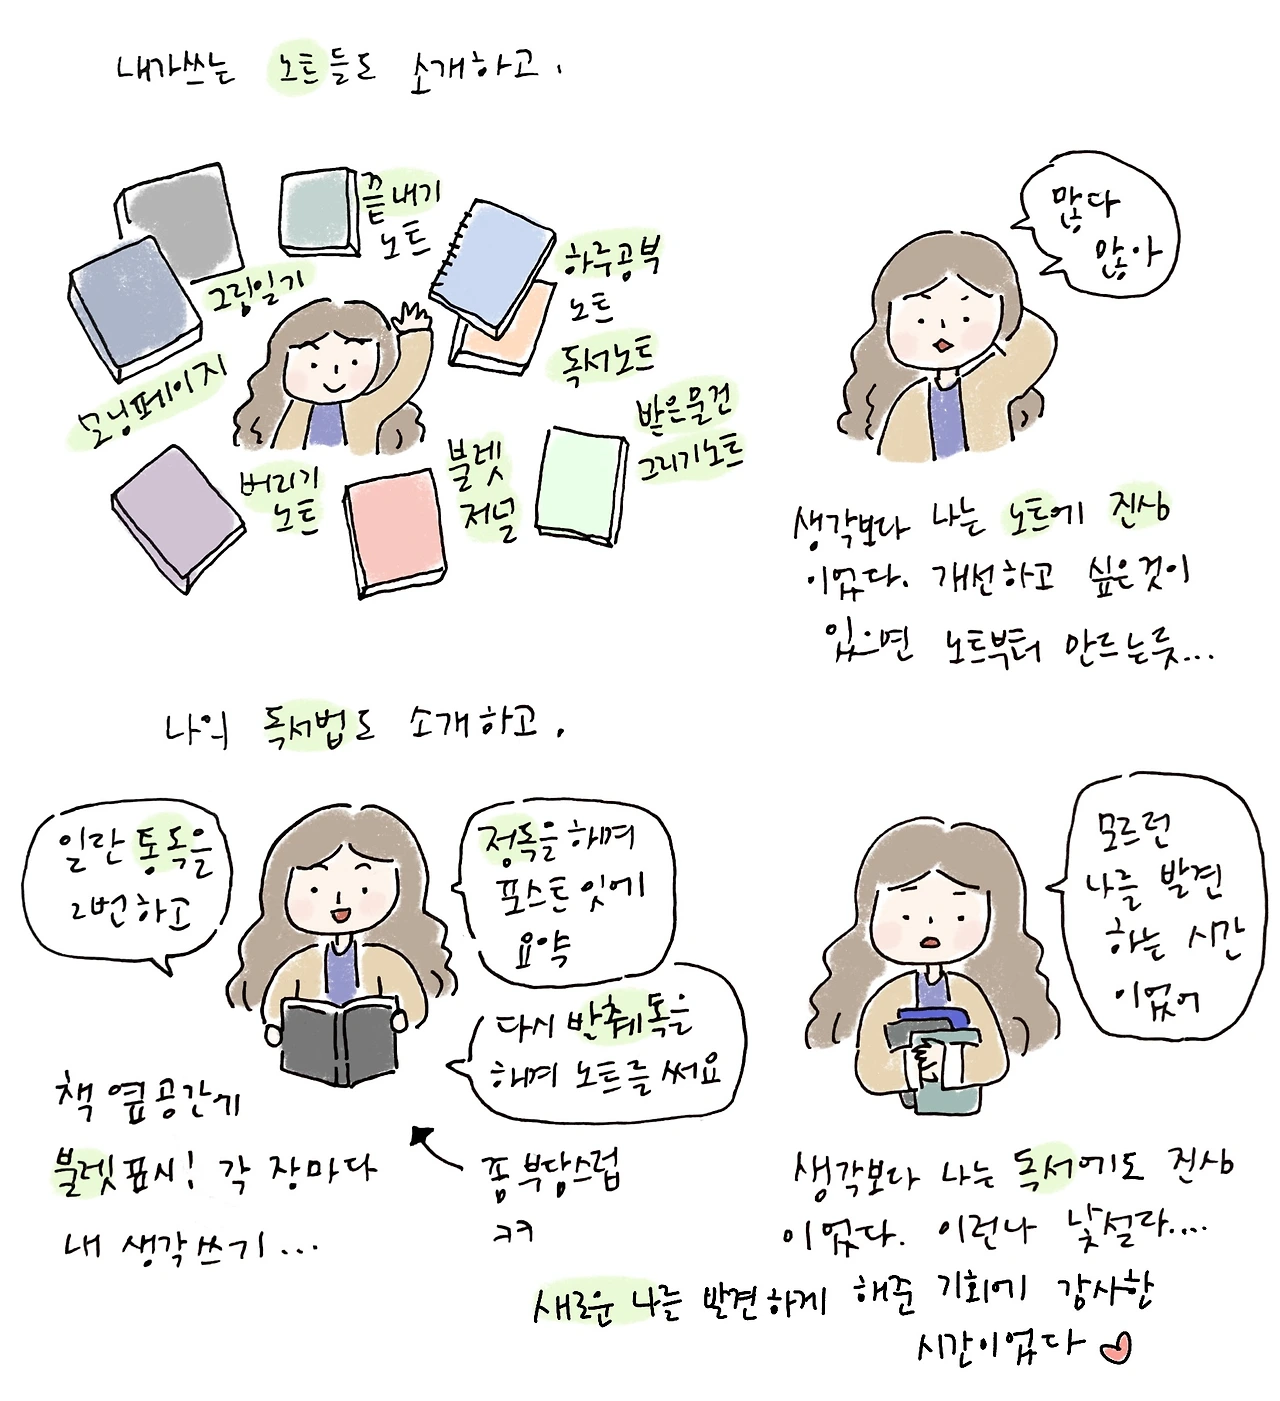 내가쓰는 노트들도 소개하고.
끝내기
노트
그림일기
하루공부
노트
독서노트
모닝페이지
받은물건
그리기노트
버리기
노트
불렛
저널
많다
많아
생각보다 나는 노트에 진심
이었다. 개선하고 싶은것이
있으면 노트부터 만드는듯...
나의 독서법도 소개하고.
일단 통독을
2번하고
정독을 하며
포스트잇에
요약
다시 발췌독을
하며 노트를 써요
책 옆공간에
불렛표시! 각 장마다
내 생각쓰기...
좀 부담스럽
ㅋㅋ
모르던
나를 발견
하는 시간
이었어
생각보다 나는 독서에도 진심
이었다. 이런나 낯설다....
새로운 나를 발견하게 해준 기회에 감사한
시간이었다